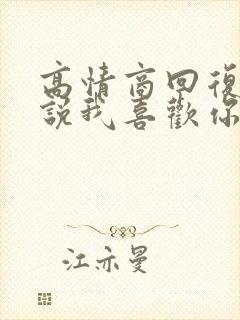 高情商回復
說我喜歡你
江亦曼